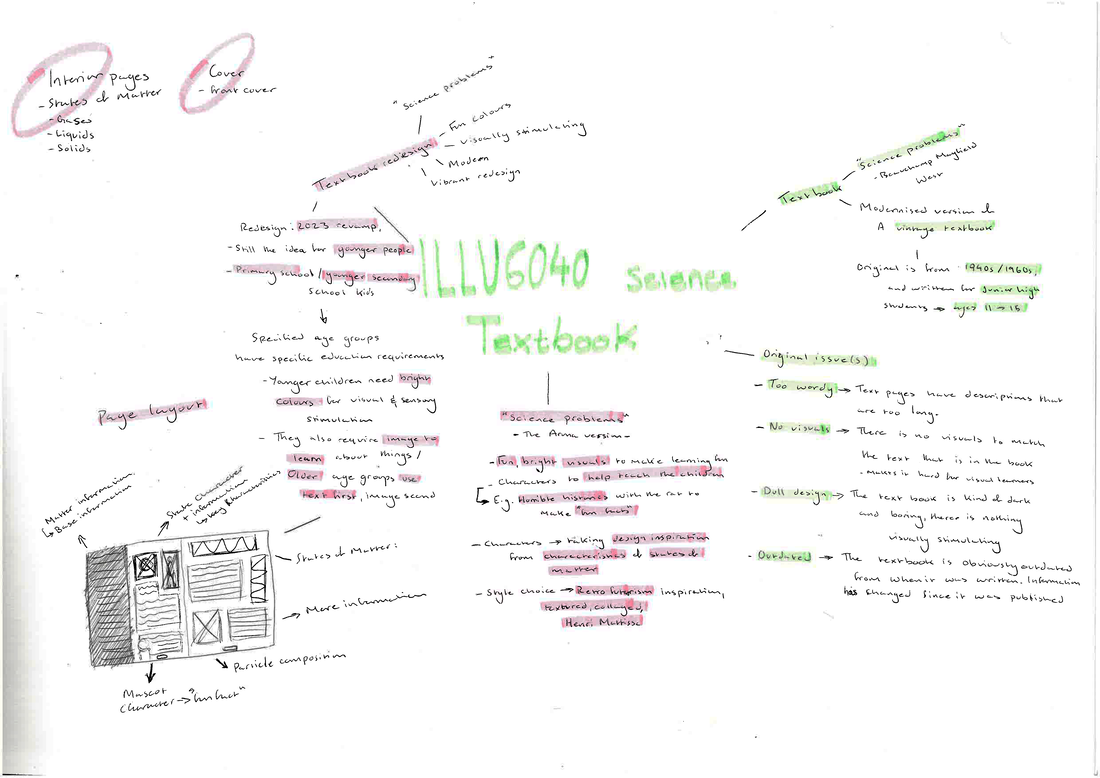 Interior pages
- States of Matter
- Gases
- Liquids
- Solids
Cover
- Front cover
"Science problems"
Textbook redesign
- Fun colours
- Visually stimulating
Modern
Vibrant redesign
Redesign: 2023 revamp,
- Still the idea for younger people
- Primary school / younger secondary
school kids
Specified age groups
have specific education requirements
- Younger children need bright
colours for visual & sensory
stimulation
- They also require image to
learn about things /
Older age groups use
text first, image second
ILLU6040 Science
Textbook
"Science problems"
- The Arma version -
- Fun, bright visuals to make learning fun
- Characters to help teach the children
E.g. Horrible histories with the rat to
make "fun facts"
- Characters → taking design inspiration
from characteristics of states of
matter
- Style choice → Retro futurism inspiration,
textured, collaged,
Henri Matissa
Textbook
"Science problems"
- Beauchamp Mayfield
West
Modernised version of
A vintage textbook
Original is from 1940s/1960s,
and written for Junior high
students → ages 11 → 15
Original issue(s)
- Too wordy → Text pages have descriptions that
are too long.
- No visuals → There is no visuals to match
the text that is in the book
- makes it hard for visual learners
- Dull design → The text book is kind of dark
and boring, there is nothing
visually stimulating
- Outdated → The textbook is obviously outdated
from when it was written. Information
has changed since it was published
Page layout
Matter information
↳ Base information
State Character
+ information
↳ key characteristics
States of Matter:
→ More information
Particle composition
Mascot
Character → "fun fact"